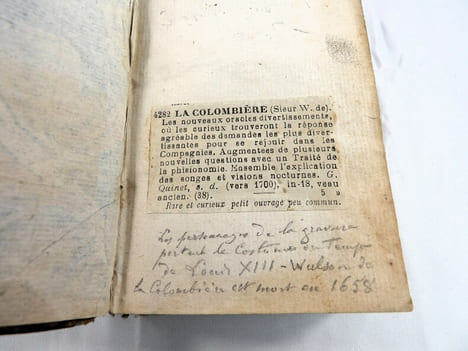 4282 LA COLOMBIÈRE (Sieur W. de).
Les nouveaux oracles divertissements,
où les curieux trouveront la réponse
agréable des demandes les plus diver-
tissantes pour se réjouir dans les
Compagnies. Augmentées de plusieurs
nouvelles questions avec un Traité de
la phisionomie. Ensemble l'explication
des songes et visions nocturnes. G.
Quinet, s. d. (vers 1700), in-18, veau
ancien. (38). 5 »
Rare et curieux petit ouvrage peu commun.
Les personages de la gravure
portent le Costume du temps
de Louis XIII - Wulson de
la Colombière est mort en 1658